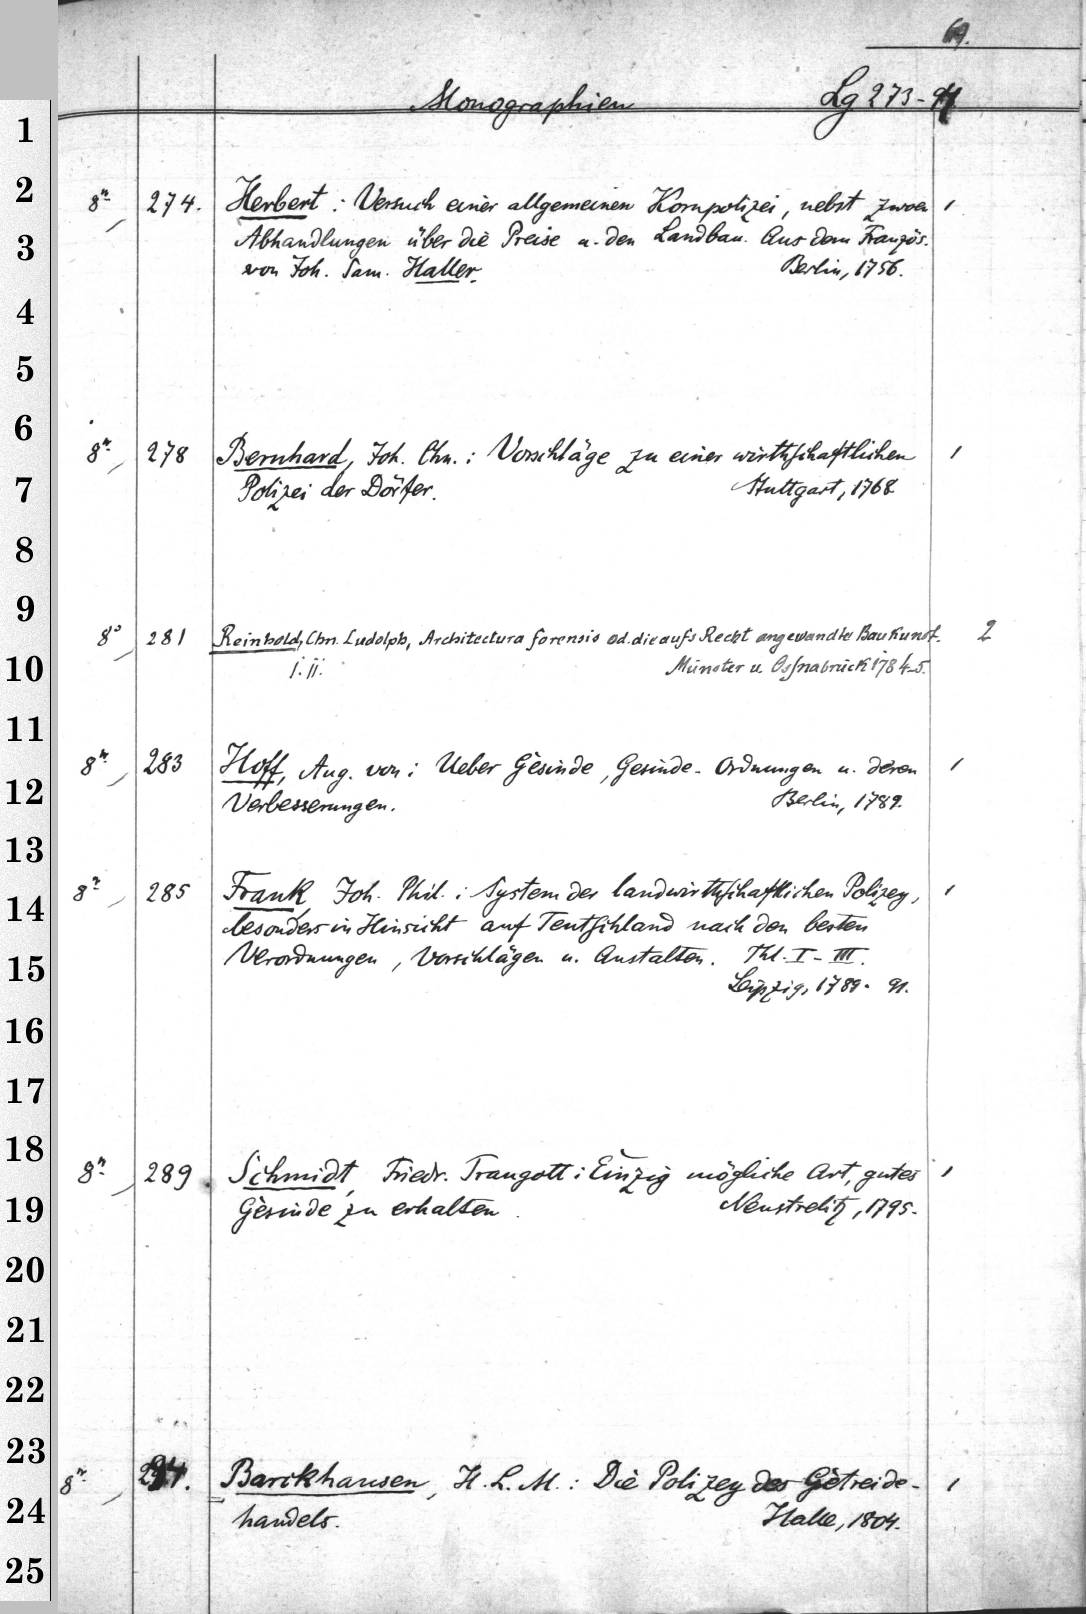 69.
Monographien Lg 273-94
1
2
8° 274. Herbert: Versuch einer allgemeinen Kornpolizei, nebst zwoen 1
3
Abhandlungen über die Preise u. den Landbau. Aus dem Französ.
von Joh. Sam. Haller. Berlin, 1756.
4
5
6
8° 278 Bernhard, Joh. Chn.: Vorschläge zu einer wirthschaftlichen 1
7
Polizei der Dörfer. Stuttgart, 1768
8
9
8° 281 Reinhold, Chn. Ludolph, Architectura forensis od. die aufs Recht angewandte Baukunst. 2
10
i. ii. Münster u. Osnabrück 1784-5.
11
8° 283 Hoff, Aug. von: Ueber Gesinde, Gesinde-Ordnungen u. deren 1
12
Verbesserungen. Berlin, 1789.
13
8° 285 Frank, Joh. Phil.: System der landwirthschaftlichen Polizey, 1
14
besonders in Hinsicht auf Teutschland nach den besten
15
Verordnungen, Vorschlägen u. Anstalten. Thl. I-III.
Leipzig, 1789-91.
16
17
18
8° 289 Schmidt, Friedr. Traugott: Einzig mögliche Art, gutes 1
19
Gesinde zu erhalten. Neustrelitz, 1795.
20
21
22
23
8° 294. Barckhausen, H. L. M.: Die Polizey des Getreide- 1
24
handels. Halle, 1804.
25